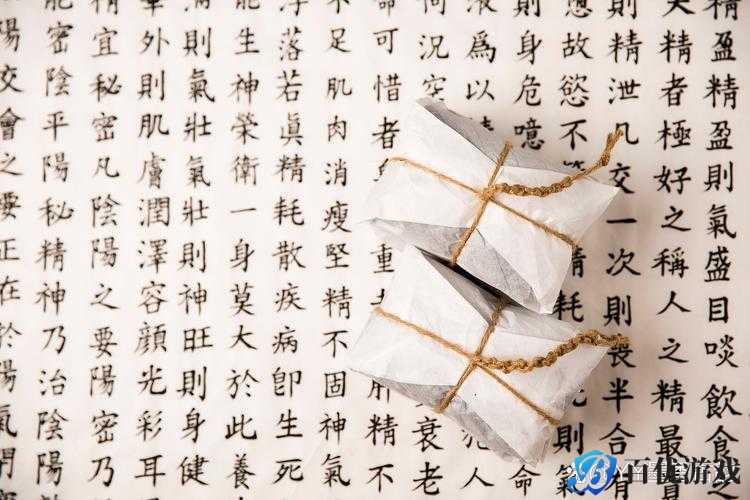 精盈精盈則氣盛目啖飲食之
精者極好之稱人之精最
則精泄凡交一次則喪半合
故慾不精耗則氣
則身危噫命
液爲以犯人
何況空衰老
命可惜者重肝精不
不足肌肉消瘦堅精不固神氣
浮落若眞精耗散疾病卽生死
能生神榮衛一身莫大於此養
滿則氣壯氣壯則神旺則身健
華外則肌膚潤澤容顏光彩耳
精宜秘密凡陰陽之要陽密乃
能密陰平陽秘精神乃治陰陽
陽交會之要正在於陽氣閉
百优游戏